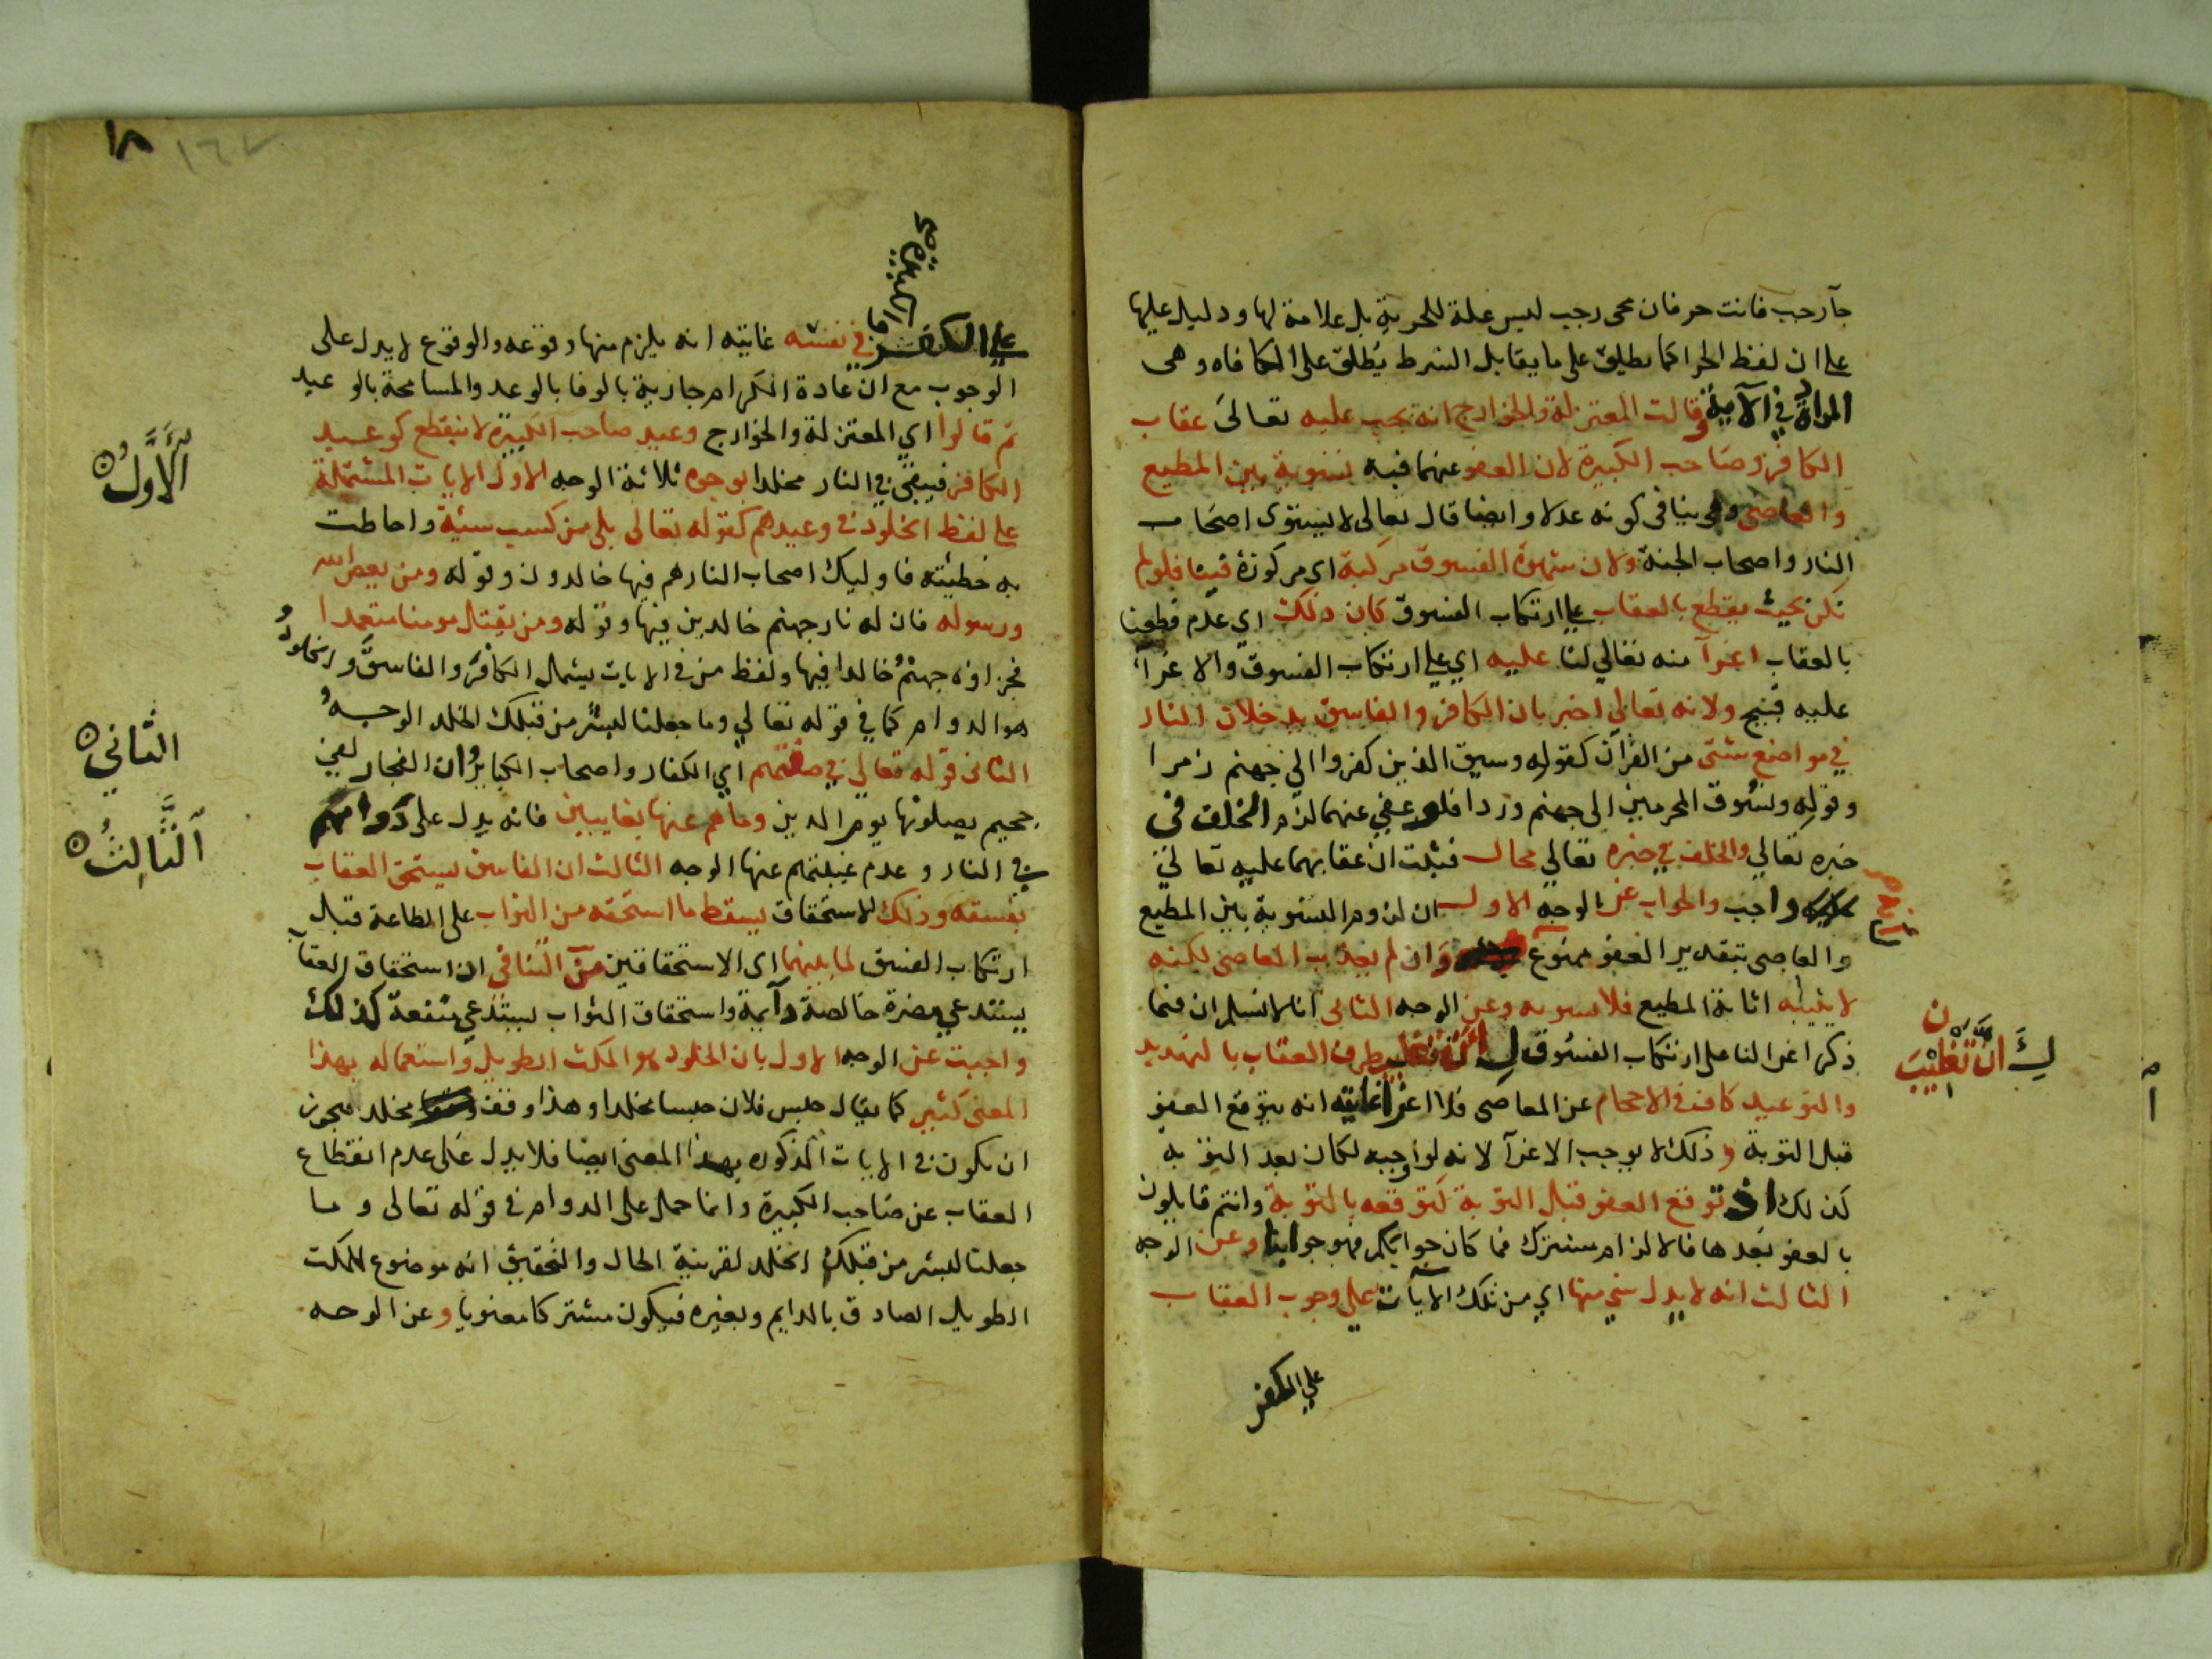 جآ رجب فانت حر فان مجى رجب ليس علة للحرية بل علامة لها ودليل عليها
علي ان لفظ الجزا كما يطلق على ما يقابل الشرط يطلق على المكافاه وهى
المراد في الآية وقالت المعتزلة والخوارج انه يجب عليه تعالى عقاب
الكافر وصاحب الكبيرة لان العفو عنهما فيه تسوية بين المطيع
والعاصى وهى ينافى كونه عدلا وايضا قال تعالى لا يستوى اصحاب
النار واصحاب الجنة ولان شهوة الفسوق مركبة اى مركوزة فينا فلو لم
نكن بحيث يقطع بالعقاب علي ارتكاب الفسوق كان ذلك اي عدم قطعنا
بالعقاب اغرآ منه تعالي لنا عليه اي علي ارتكاب الفسوق والاغرآ
عليه قبيح ولانه تعالي اخبر بان الكافر والفاسق يدخلان النار
في مواضع شتى من القرآن كقوله وسيق الذين كفروا الي جهنم زمرا
وقوله ونسوق المجرمين الى جهنم وردا فلو عفي عنهما لزم الخلف في
خبره تعالي والخلف في خبره تعالي محال فثبت ان عقابهما عليه تعالي
واجب والجواب عن الوجه الاول ان لزوم التسوية بين المطيع
والعاصى بتقدير العفو ممنوع وان لم يعذب العاصى لكنه
لا يثيبه اثابة المطيع فلا تسويه وعن الوجه الثانى انا لا نسلم ان فيما
ذكر اغرا لنا على ارتكاب الفسوق طرف العقاب بالتهديد
لِـَ انَّ تَغْلِيبَ
والتوعيد كاف في الاحجام عن المعاصى فلا اغرا غايته انه يتوقع العفو
قبل التوبة وذلك لا يوجب الاغرآ لانه لو اوجبه لكان بعد التوبة
كذلك اذ توقع العفو قبل التوبة كتوقعه بالتوبة وانتم قايلون
بالعفو بعدها فالالزام مشترك فما كان جوابكم فهو جوابنا وعن الوجه
الثالث انه لا يدل شي منها اي من تلك الآيات علي وجوب العقاب
علي الكفر
١٦٧
علي الكفر في نفسه غايته انه يلزم منها وقوعه والوقوع لا يدل على
الوجوب مع ان عادة الكرام جارية بالوفا بالوعد والمسامحة بالوعيد
ثم قالوا اي المعتزلة والخوارج وعيد صاحب الكبيرة لا ينقطع كوعيد
الكافر فيبقى في النار مخلدا بوجوه ثلاثة الوجه الاول الايات المشتملة
الْاَوَّلُ
علي لفظ الخلود في وعيدهم كقوله تعالى بلى من كسب سيئة واحاطت
به خطيئته فاوليك اصحاب النار هم فيها خالدون وقوله ومن يعص الله
ورسوله فان له نار جهنم خالدين فيها وقوله ومن يقتل مومنا متعمدا
فجزاوه جهنم خالدا فيها ولفظ من في الايات يشمل الكافر والفاسق والخلود
هو الدوام كما في قوله تعالي وما جعلنا لبشر من قبلك الخلد الوجه
الثانى قوله تعالي في صفتهم اي الكفار واصحاب الكباير وان الفجار لفي
الثاني
جحيم يصلونها يوم الدين وما هم عنها بغايبين فانه يدل على دوامهم
اَلثَّالِثُ
في النار وعدم غيبتهم عنها الوجه الثالث ان الفاسق يستحق العقاب
بفسقه وذلك الاستحقاق يسقط ما استحقه من الثواب على الطاعة قبل
ارتكاب الفسق لما بينهما اى الاستحقاقين من التنافى اذ استحقاق العقاب
يستدعي مضرة خالصة دآيمة واستحقاق الثواب يستدعي منفعة كذلك
واجيب عن الوجه الاول بان الخلود هو المكث الطويل واستعماله بهذا
المعنى كثير كما يقال حبس فلان حبسا مخلدا وهذا وقف مخلد فيجوز
ان يكون في الايات المذكوره بهذا المعنى ايضا فلا يدل على عدم انقطاع
العقاب عن صاحب الكبيرة وانما حمل على الدوام في قوله تعالى وما
جعلنا لبشر من قبلك الخلد لقرينة الحال والتحقيق انه موضوع للمكث
الطويل الصادق بالدايم وبغيره فيكون مشتركا معنويا وعن الوجه